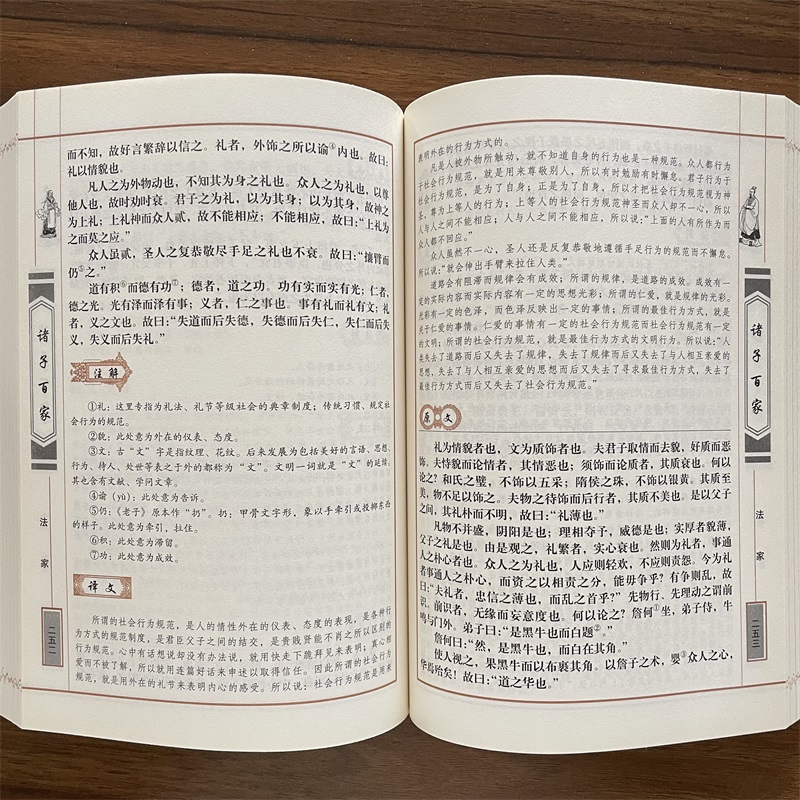 诸子百家
法家
二五二
而不知，故好言繁辞以信之。礼者，外饰之所以谕④内也。故曰：
礼以情貌也。
凡人之为外物动也，不知其为身之礼也。众人之为礼也，以尊
他人也，故时劝时衰。君子之为礼，以为其身；以为其身，故神之
为上礼；上礼神而众人贰，故不能相应；不能相应，故曰：“上礼为
之而莫之应。”
众人虽贰，圣人之复恭敬尽手足之礼也不衰。故曰：“攘臂而
仍⑤之。”
道有积⑥而德有功⑦；德者，道之功。功有实而实有光；仁者，
德之光。光有泽而泽有事；义者，仁之事也。事有礼而礼有文；礼
者，义之文也。故曰：“失道而后失德，失德而后失仁，失仁而后失
义，失义而后失礼。”
注解
①礼：这里专指为礼法、礼节等级社会的典章制度；传统习惯、规定社
会行为的规范。
②貌：此处意为外在的仪表、态度。
③文：古“文”字是指纹理、花纹。后来发展为包括美好的言语、思想、
行为、待人、处世等表之于外的都称为“文”。文明一词就是“文”的延续，
其也含有文献、学问文章。
④谕（yù）：此处意为告诉。
⑤仍：《老子》原本作“扔”。扔：甲骨文字形，象以手牵引或投掷东西
的样子。此处意为牵引，拉住。
⑥积：此处意为滞留。
⑦功：此处意为成效。
译文
所谓的社会行为规范，是人的情性外在的仪表、态度的表现，是各种行
为方式的规范制度，是君臣父子之间的结交，是贵贱贤能不肖之所以区别的
行为规范。心中有话想说却没有办法说，就用快走下跪拜见来表明；真心相
爱而不被了解，所以就用连篇好话来申述以取得信任。因此所谓的社会行为
规范，就是用外在的礼节来表明内心的感受。所以说：社会行为规范是用来
表明外在的行为方式的。
凡是人被外物所触动，就不知道自身的行为也是一种规范。众人都行为
于社会行为规范，就是用来尊敬别人，所以有时勉励有时懈怠。君子行为于
社会行为规范，是为了自身；正是为了自身，所以才把社会行为规范视为神
圣，尊为上等人的行为；上等人的社会行为规范神圣而众人却不一心，所以
人与人之间不能相应；人与人之间不能相应，所以说：“上面的人有所作为而
众人都不回应。”
众人虽然不一心，圣人还是反复恭敬地遵循手足行为的规范而不懈怠。
所以说：“就会伸出手臂来拉住人类。”
道路会有阻滞而规律会有成效；所谓的规律，是道路的成效。成效有一
定的实际内容而实际内容有一定的思想光彩；所谓的仁爱，就是规律的光彩。
光彩有一定的色泽，而色泽反映出一定的事情；所谓的最佳行为方式，就是
关于仁爱的事情。仁爱的事情有一定的社会行为规范而社会行为规范有一定
的文明；所谓的社会行为规范，就是最佳行为方式的文明行为。所以说：“人
类失去了道路而后又失去了规律，失去了规律而后又失去了与人相互亲爱的
思想，失去了与人相互亲爱的思想而后又失去了寻求最佳行为方式，失去了
最佳行为方式而后又失去了社会行为规范。”
原文
礼为情貌者也，文为质饰者也。夫君子取情而去貌，好质而恶
饰。夫恃貌而论情者，其情恶也；须饰而论质者，其质衰也。何以
论之？和氏之璧，不饰以五采；隋侯之珠，不饰以银黄。其质至
美，物不足以饰之。夫物之待饰而后行者，其质不美也。是以父子
之间，其礼朴而不明，故曰：“礼薄也。”
凡物不并盛，阴阳是也；理相夺予，威德是也；实厚者貌薄，
父子之礼是也。由是观之，礼繁者，实心衰也。然则为礼者，事通
人之朴心者也。众人之为礼也，人应则轻欢，不应则责怨。今为礼
者事通人之朴心，而资之以相责之分，能毋争乎？有争则乱，故
曰：“夫礼者，忠信之薄也，而乱之首乎？”先物行、先理动之谓前
识。前识者，无缘而妄意度也。何以论之？詹何①坐，弟子侍，牛
鸣与门外。弟子曰：“是黑牛也而白题②。”
詹何曰：“然，是黑牛也，而白在其角。”
使人视之，果黑牛而以布裹其角。以詹子之术，婴③众人之心，
华焉殆矣！故曰：“道之华也。”
诸子百家
法家
二五三